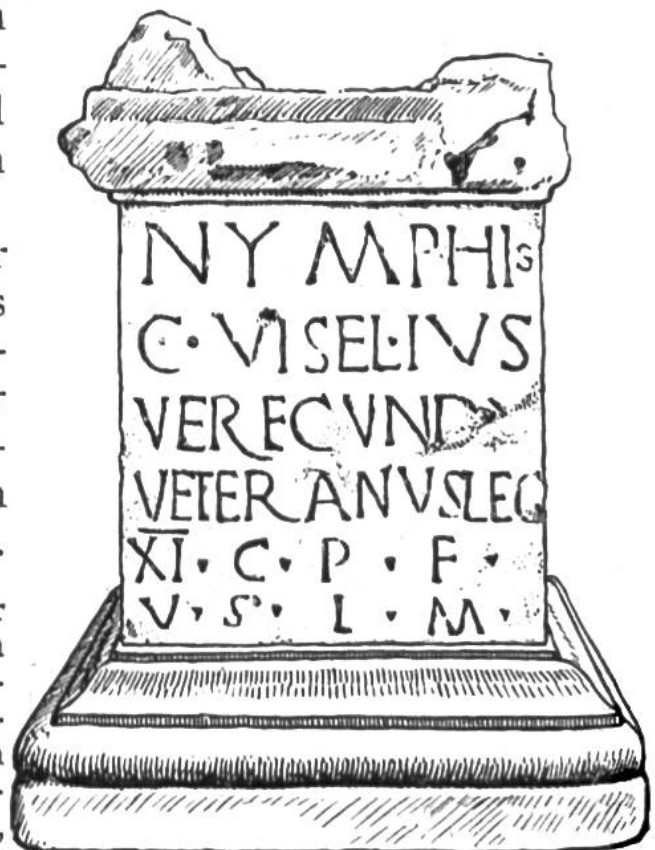 NYMPHIS
C · VISEL·IVS
VERECVND
VETERANVSLEG
XI · C · P · F ·
V · S · L · M ·